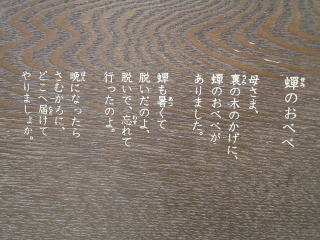 蟬のおべべ
母さま、
裏の木のかげに、
蟬のおべべが
ありました。
蟬も暑くて
脱いだのよ、
脱いで、忘れて
行ったのよ。
晩になったら
さむかろに、
どこへ届けて
やりましょか。